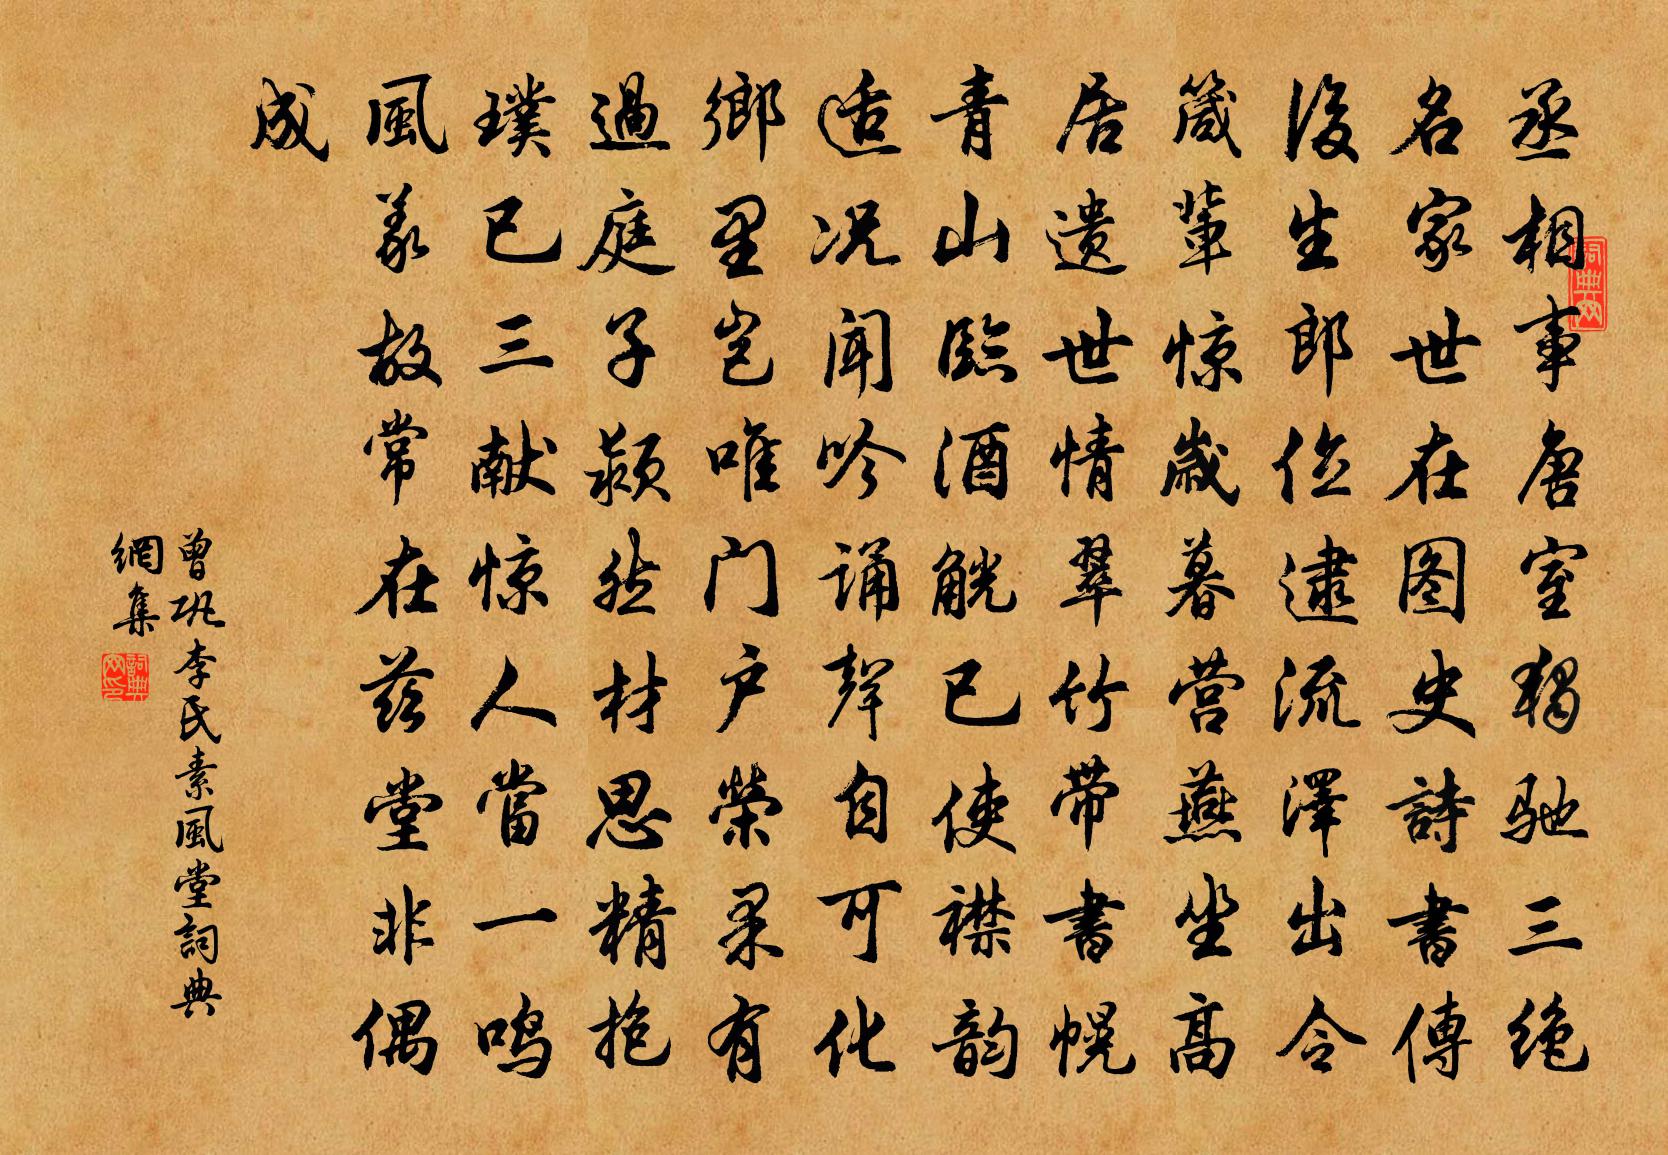 丞相事唐室独驰三绝
名家世在图史詩書傳
後生郎位逮流澤出令
箴輩惊歲暮营燕坐高
居遗世情翠竹带書幌
青山臨酒觥已使襟韵
适况闻吟诵聲自可化
鄉里岂唯门户榮果有
過庭子颖然材思精抱
璞已三献惊人當一鸣
風義故常在兹堂非偶
成
曾巩李氏素風堂詞典
網集
詞典网
詞典网印